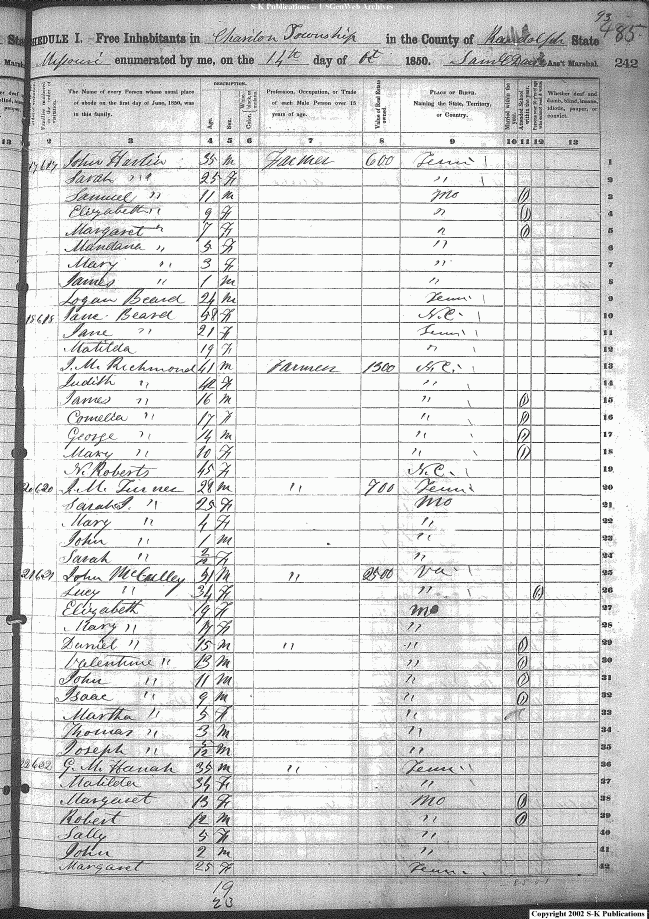 S-K Publications - USGenWeb Archives
93
485
SCHEDULE I.- Free Inhabitants in Chariton Township in the County of Randolph State
Missouri enumerated by me, on the 14th day of Oct 1850. Ass't Marshal. 242
The Name of every Person whose usual place of abode on the first day of June, 1850, was in this family.
DESCRIPTION.
Age. Sex.
Profession, Occupation, or Trade of each Male Person over 15 years of age.
Value of Real Estate owned.
PLACE OF BIRTH. Naming the State, Territory, or Country.
Married within the year.
Attended School within the year.
Whether deaf and dumb, blind, insane, idiotic, pauper, or convict.
1 2 3 4 5 6 7 8 9 10 11 12 13
617 John 35 m Farmer 600 Tenn 1
Sarah " 25 F " 2
Samuel " 11 m Mo 1 3
Elizabeth " 9 F " 1 4
Margaret " 7 F " 1 5
Mandana " 5 F " 6
Mary " 3 F " 7
James " 1 m " 8
Logan Beard 24 m Tenn 9
618 Jane Beard 58 F N.C. 10
Jane " 21 F Tenn 11
Matilda 19 F " 12
J. M. Richmond 41 m Farmer 1500 N.C. 13
Judith " 42 F " 14
James " 16 m " 1 15
Cornelia " 17 F " 1 16
George " 14 m " 1 17
Mary " 10 F " 1 18
N. Roberts 45 F N.C. 19
620 J. M. Turner 28 m " 700 Tenn 20
Sarah J. " 25 F Mo 21
Mary " 4 F " 22
John " 1 m " 23
Sarah " F " 24
621 John McCulley 51 m " 2500 Va 25
Lucy " 34 F " 1 26
Elizabeth 19 F Mo 27
Mary " 17 F " 28
Daniel " 15 m " " 1 29
Valentine " 13 m " 1 30
John " 11 m " 1 31
Isaac " 9 m " 1 32
Martha " 5 F " 33
Thomas " 3 m " 34
Joseph " m " 35
622 G. M. Hanah 35 m " Tenn 36
Matilda 34 F " 37
Margaret 13 F Mo 1 38
Robert 12 m " 1 39
Sally 5 F " 40
John 2 m " 41
Margaret 25 F Tenn 42
19
23
Copyright 2002 S-K Publications